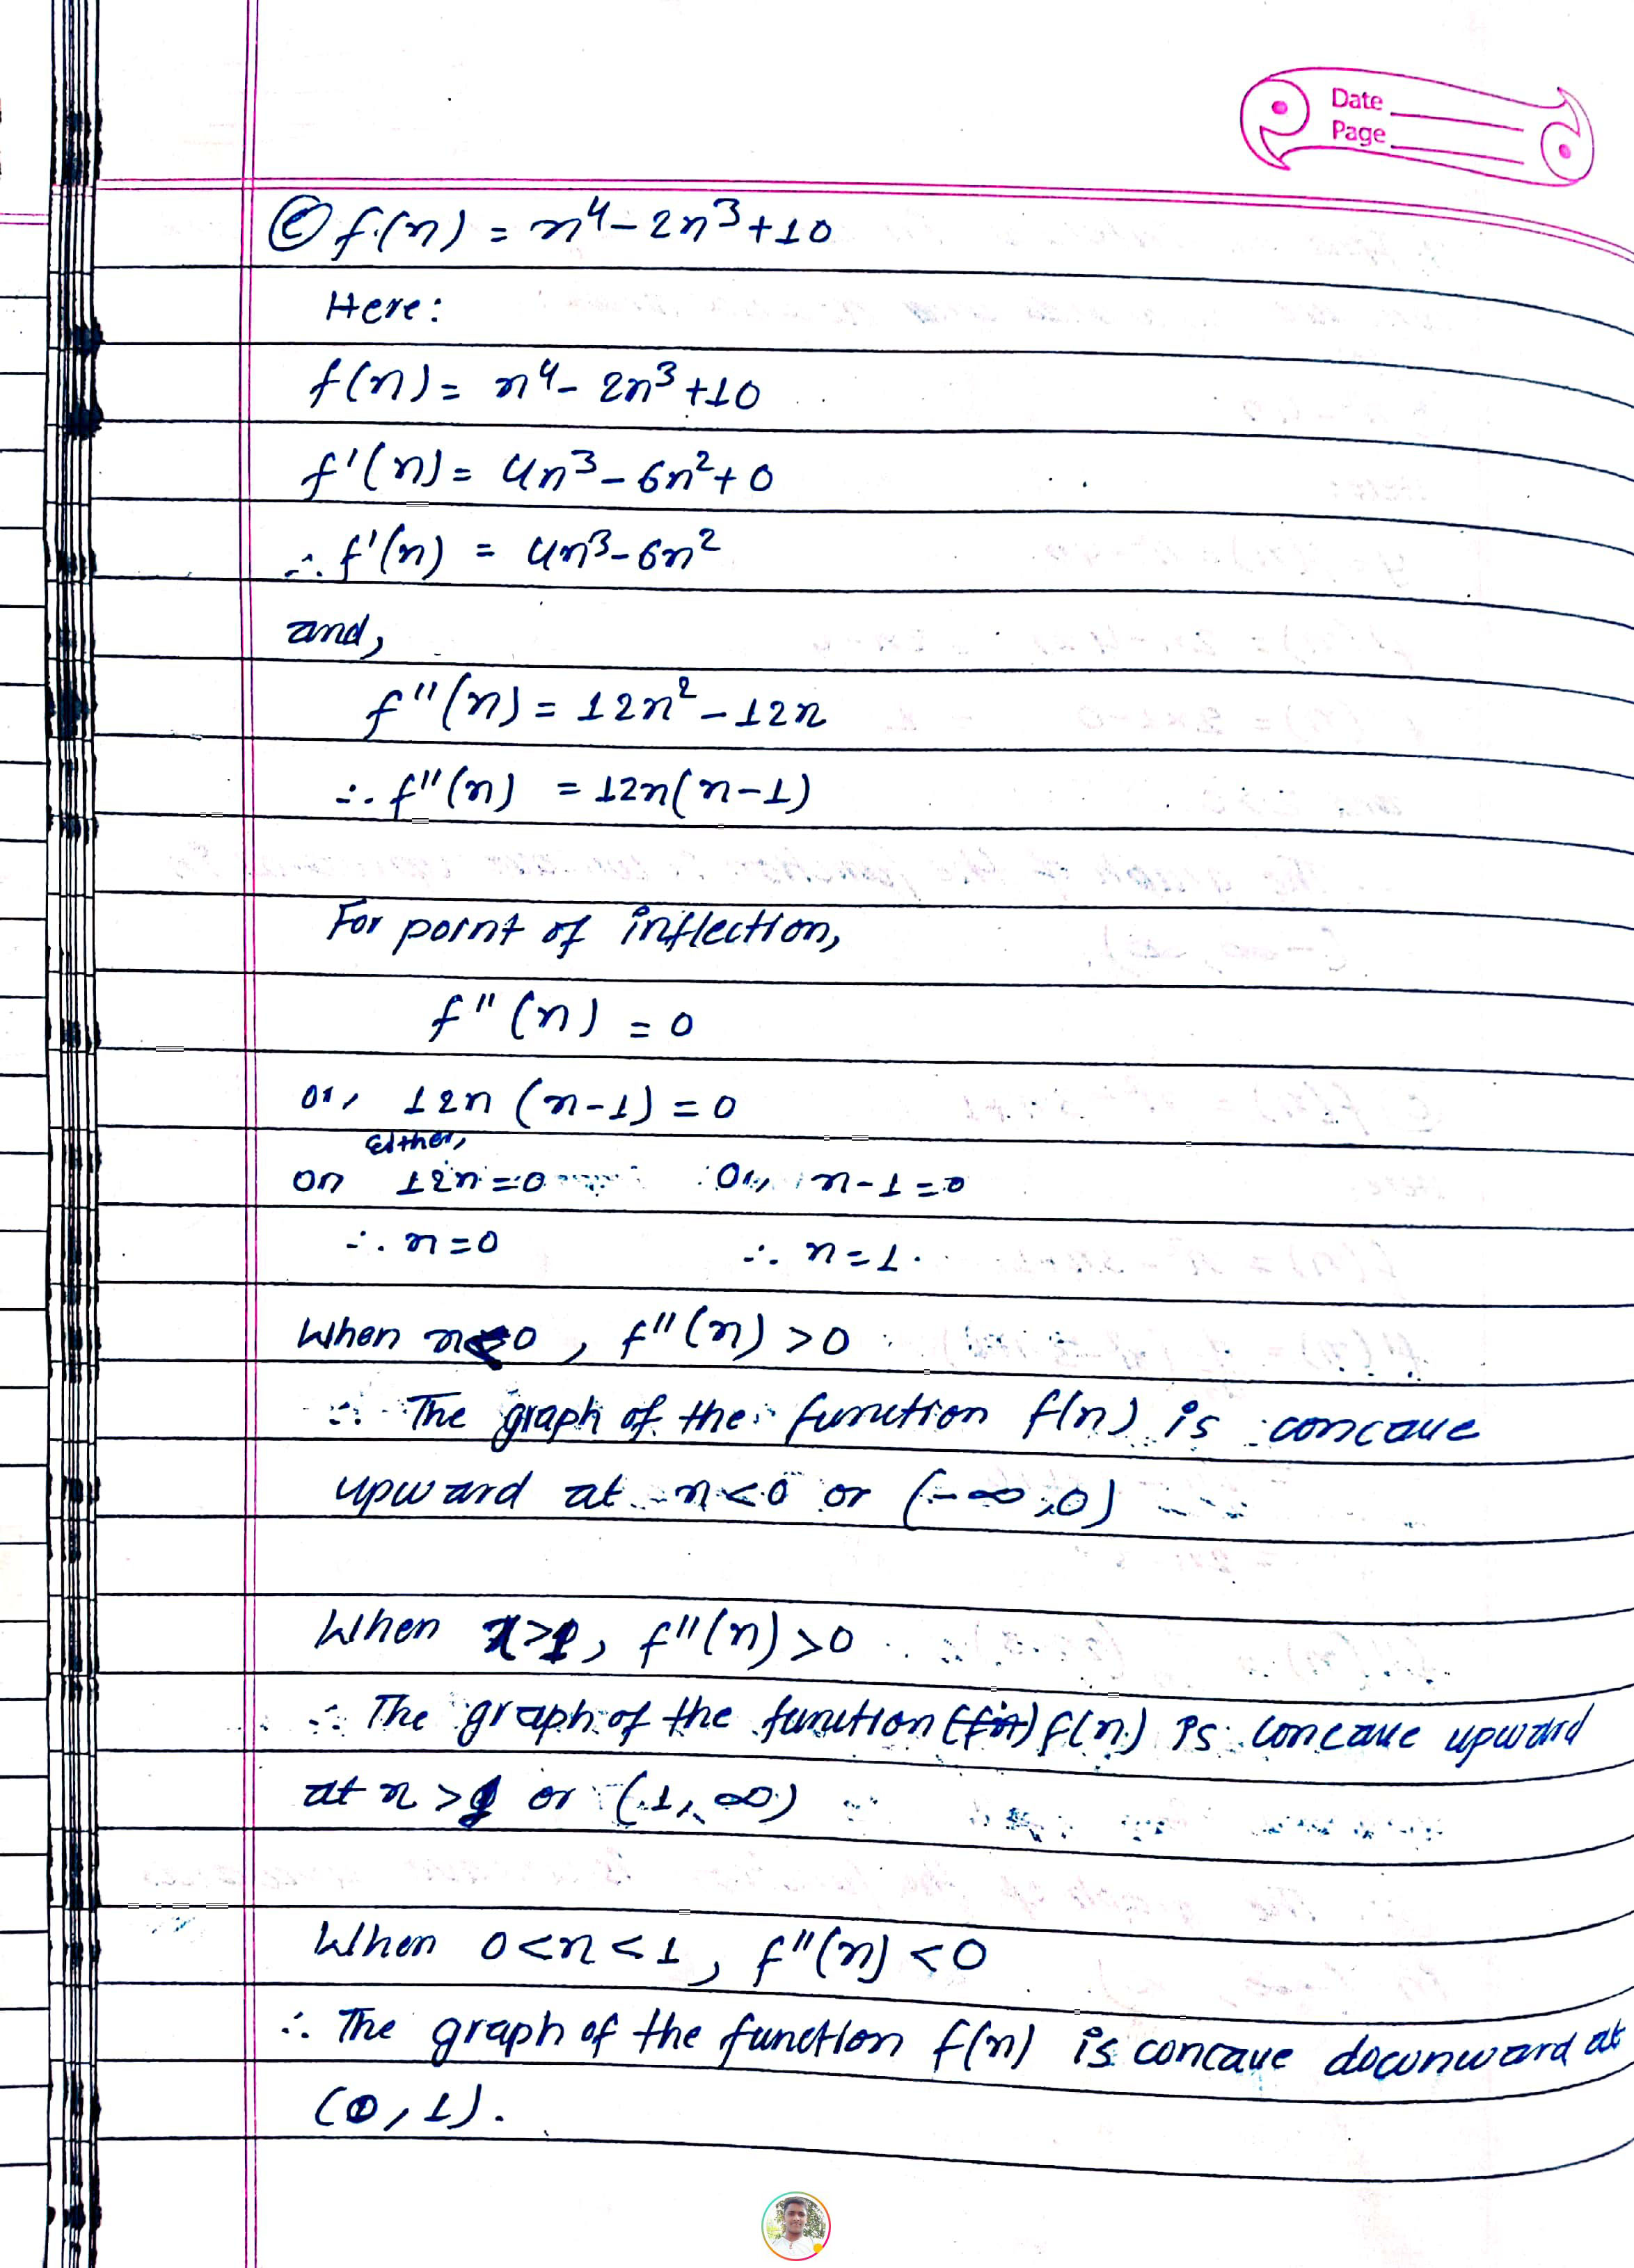 Date
Page
Ⓒ f(x) = x⁴ - 2x³ + 10
Here:
f(x) = x⁴ - 2x³ + 10
f'(x) = 4x³ - 6x² + 0
∴ f'(x) = 4x³ - 6x²
and,
f''(x) = 12x² - 12x
∴ f''(x) = 12x(x-1)
For point of inflection,
f''(x) = 0
or, 12x (x-1) = 0
Either,
or 12x = 0 Or, x-1 = 0
∴ x = 0 ∴ x = 1.
When x<0, f''(x) > 0
∴ The graph of the function f(x) is concave
upward at x<0 or (-∞,0)
When x>1, f''(x) > 0
∴ The graph of the function f(x) is concave upward
at x > 1 or (1, ∞)
When 0<x<1, f''(x) < 0
∴ The graph of the function f(x) is concave downward at
(0, 1).